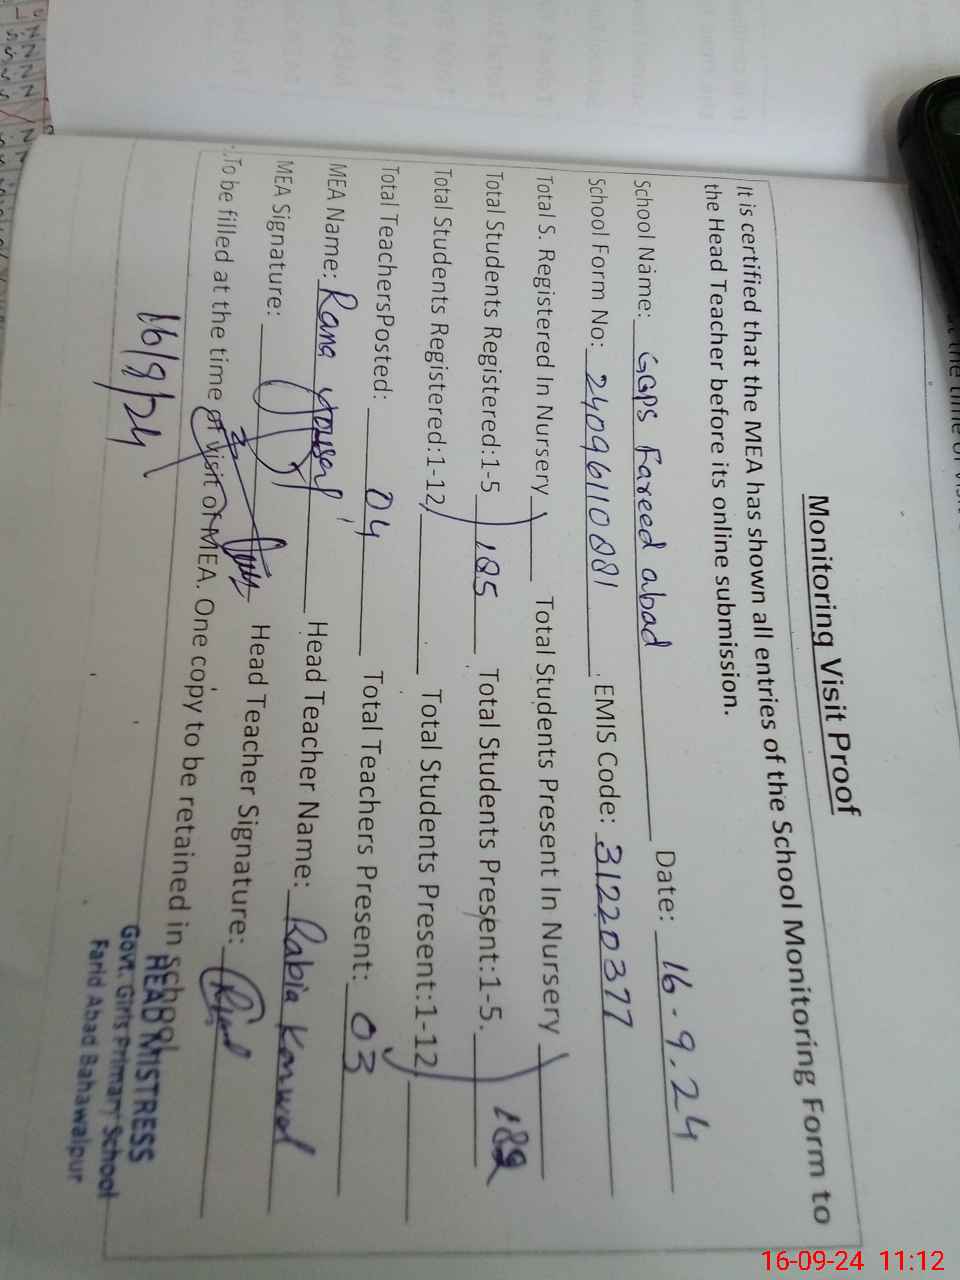 Monitoring Visit Proof
It is certified that the MEA has shown all entries of the School Monitoring Form to
the Head Teacher before its online submission.
School Name: GGPS Fareed abad Date: 16-9.24
School Form No: 24096110881 EMIS Code: 31220377
Total S. Registered In Nursery Total Students Present In Nursery
Total Students Registered:1-5 185 Total Students Present:1-5. 182
Total Students Registered:1-12, Total Students Present:1-12,
Total TeachersPosted: 04 Total Teachers Present: 03
MEA Name: Rana yousaf Head Teacher Name: Rabia Kanwal
MEA Signature: Head Teacher Signature:
To be filled at the time of visit of MEA. One copy to be retained in school
16/9/24
HEAD MISTRESS
Govt. Girls Primary School
Farid Abad Bahawalpur
16-09-24 11:12